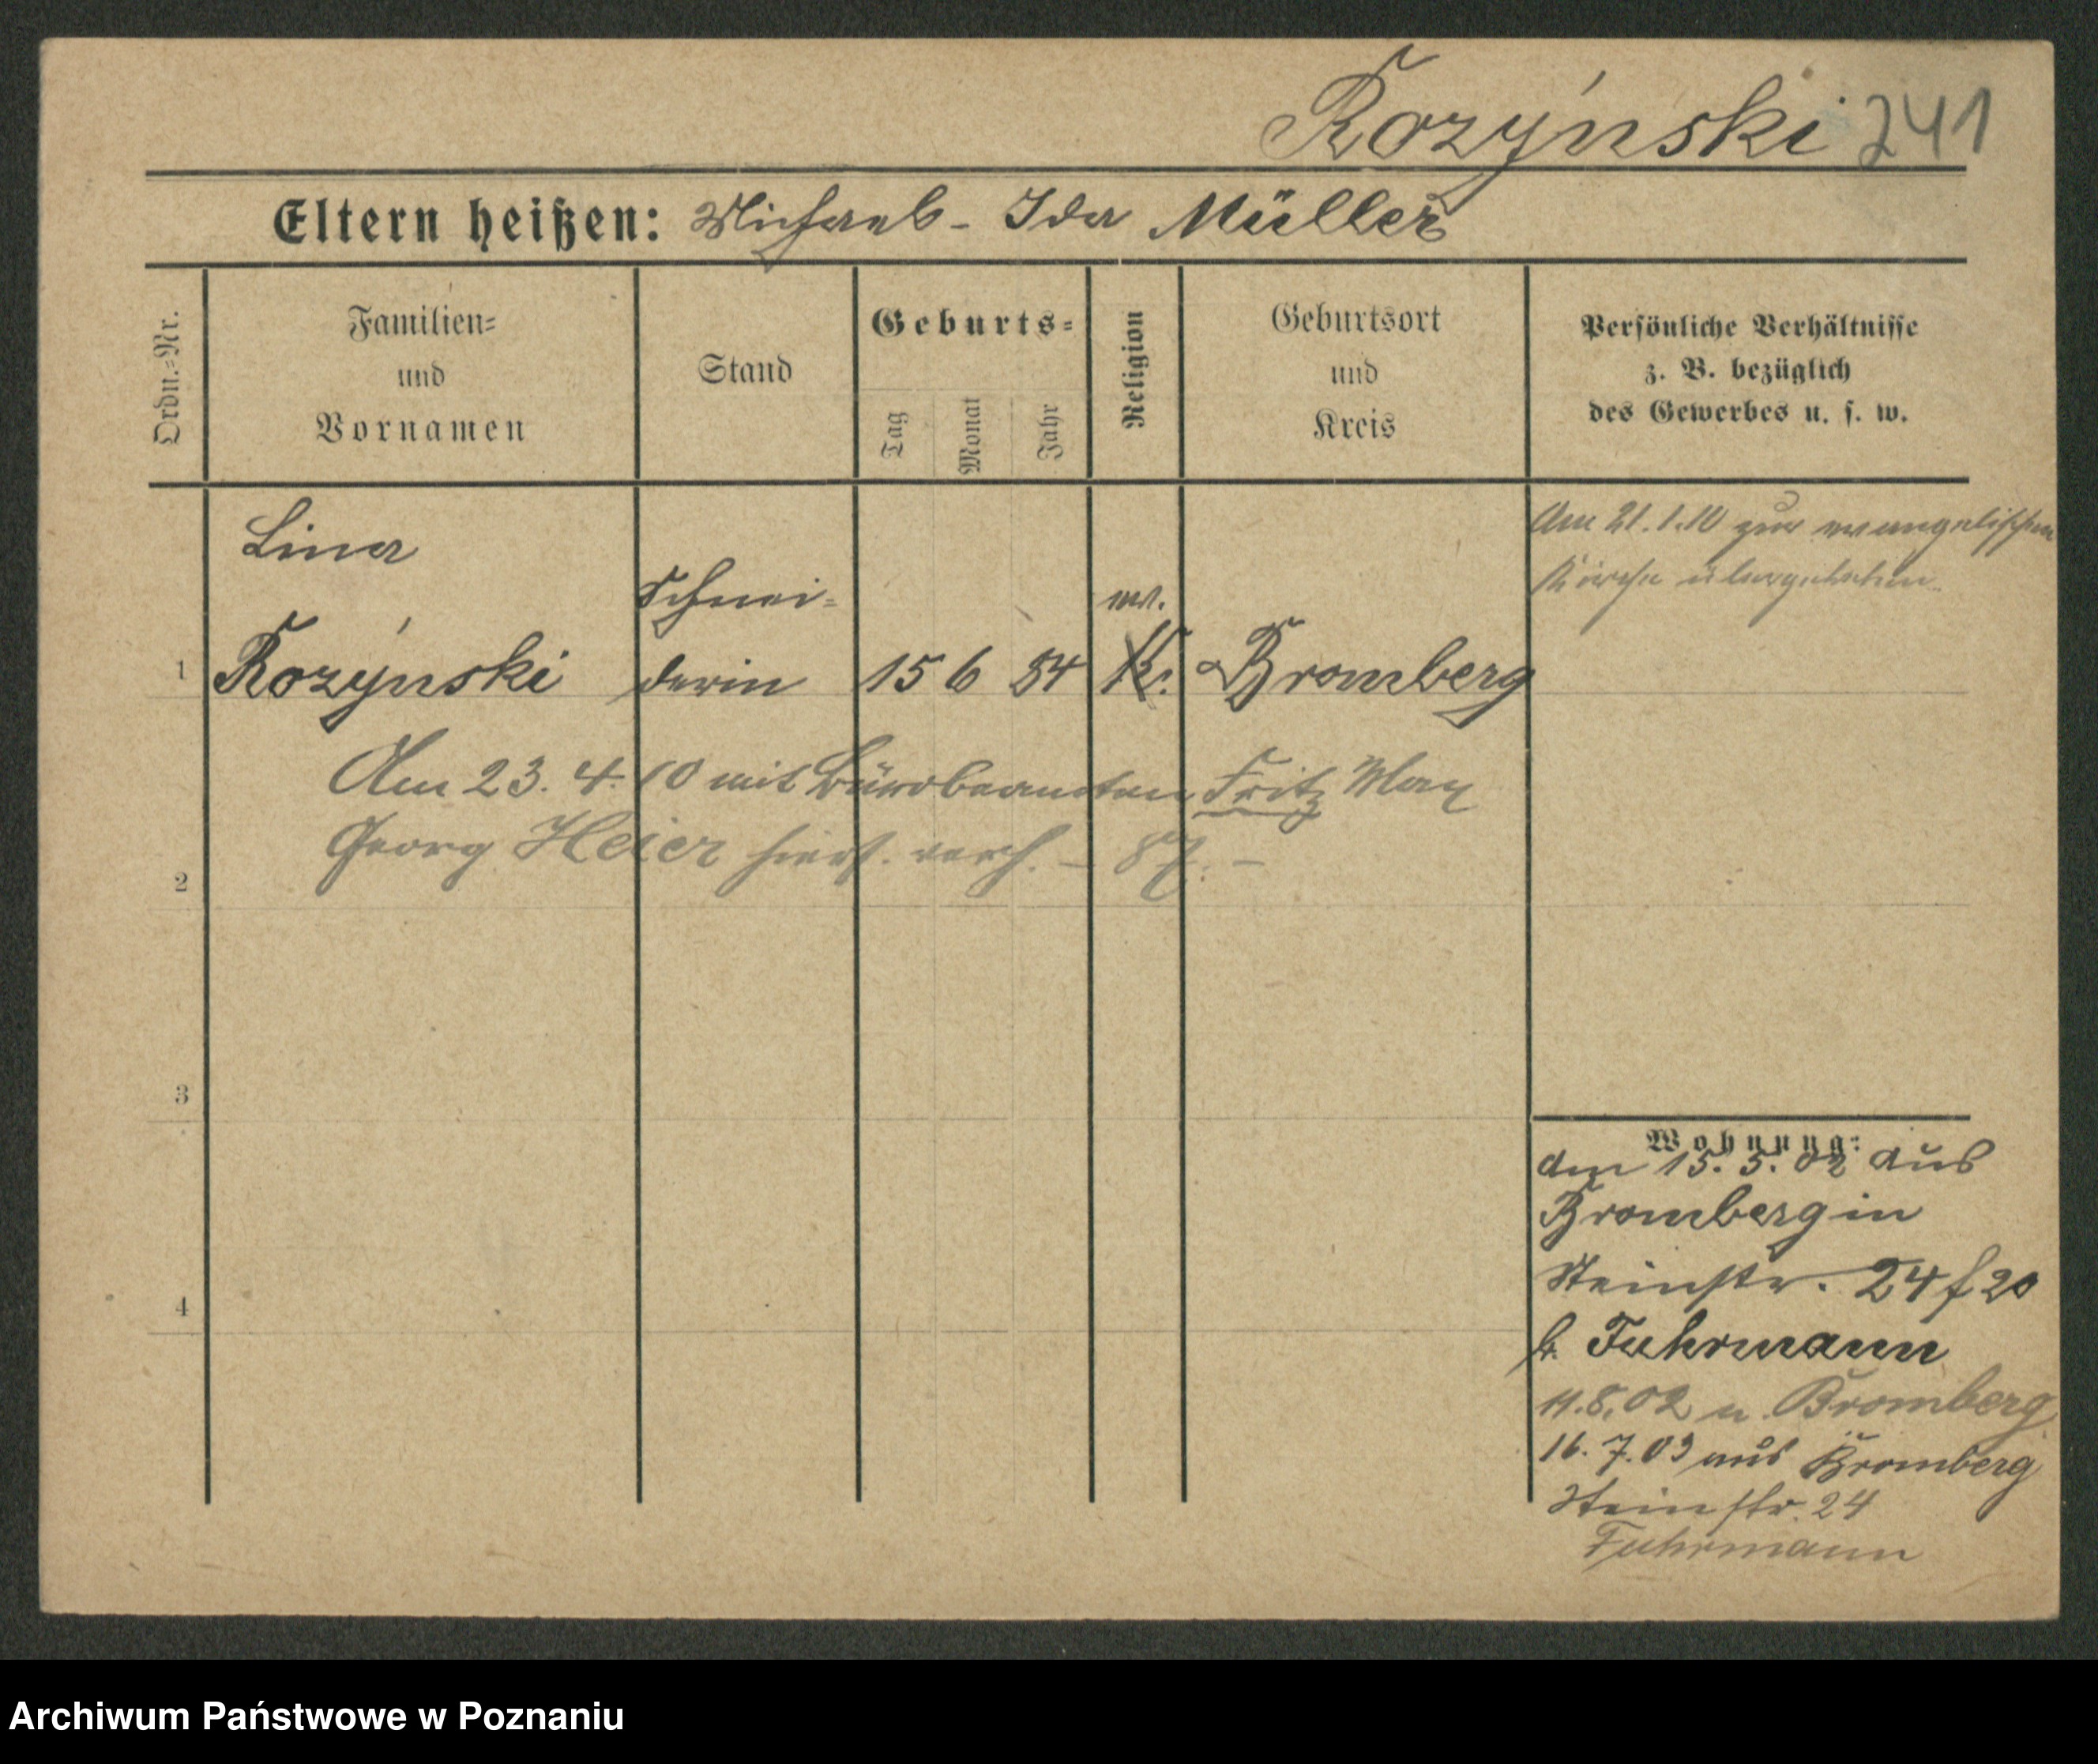 Rozyński 241
Eltern heißen: Michael - Ida Müller
Ordn.=Nr.
Familien=
und
Vornamen
Stand
Geburts=
Tag
Monat
Jahr
Religion
Geburtsort
und
Kreis
Persönliche Verhältnisse
z. B. bezüglich
des Gewerbes u. s. w.
Am 21.1.10 zur evangelischen
Kirche übergetreten.
Lina
Schnei=
ev.
1 Rozyński derin 15 6 84 K. Bromberg
Am 23.4.10 mit Bürobeamten Fritz Max
Georg Heier hiers. verh. – 87. –
2
3
4
Wohnung:
Am 15.5.02 aus
Bromberg in
Steinstr. 24 f 20
b. Fuhrmann
11.8.02 n. Bromberg
16.7.03 aus Bromberg
Steinstr. 24
Fuhrmann
Archiwum Państwowe w Poznaniu